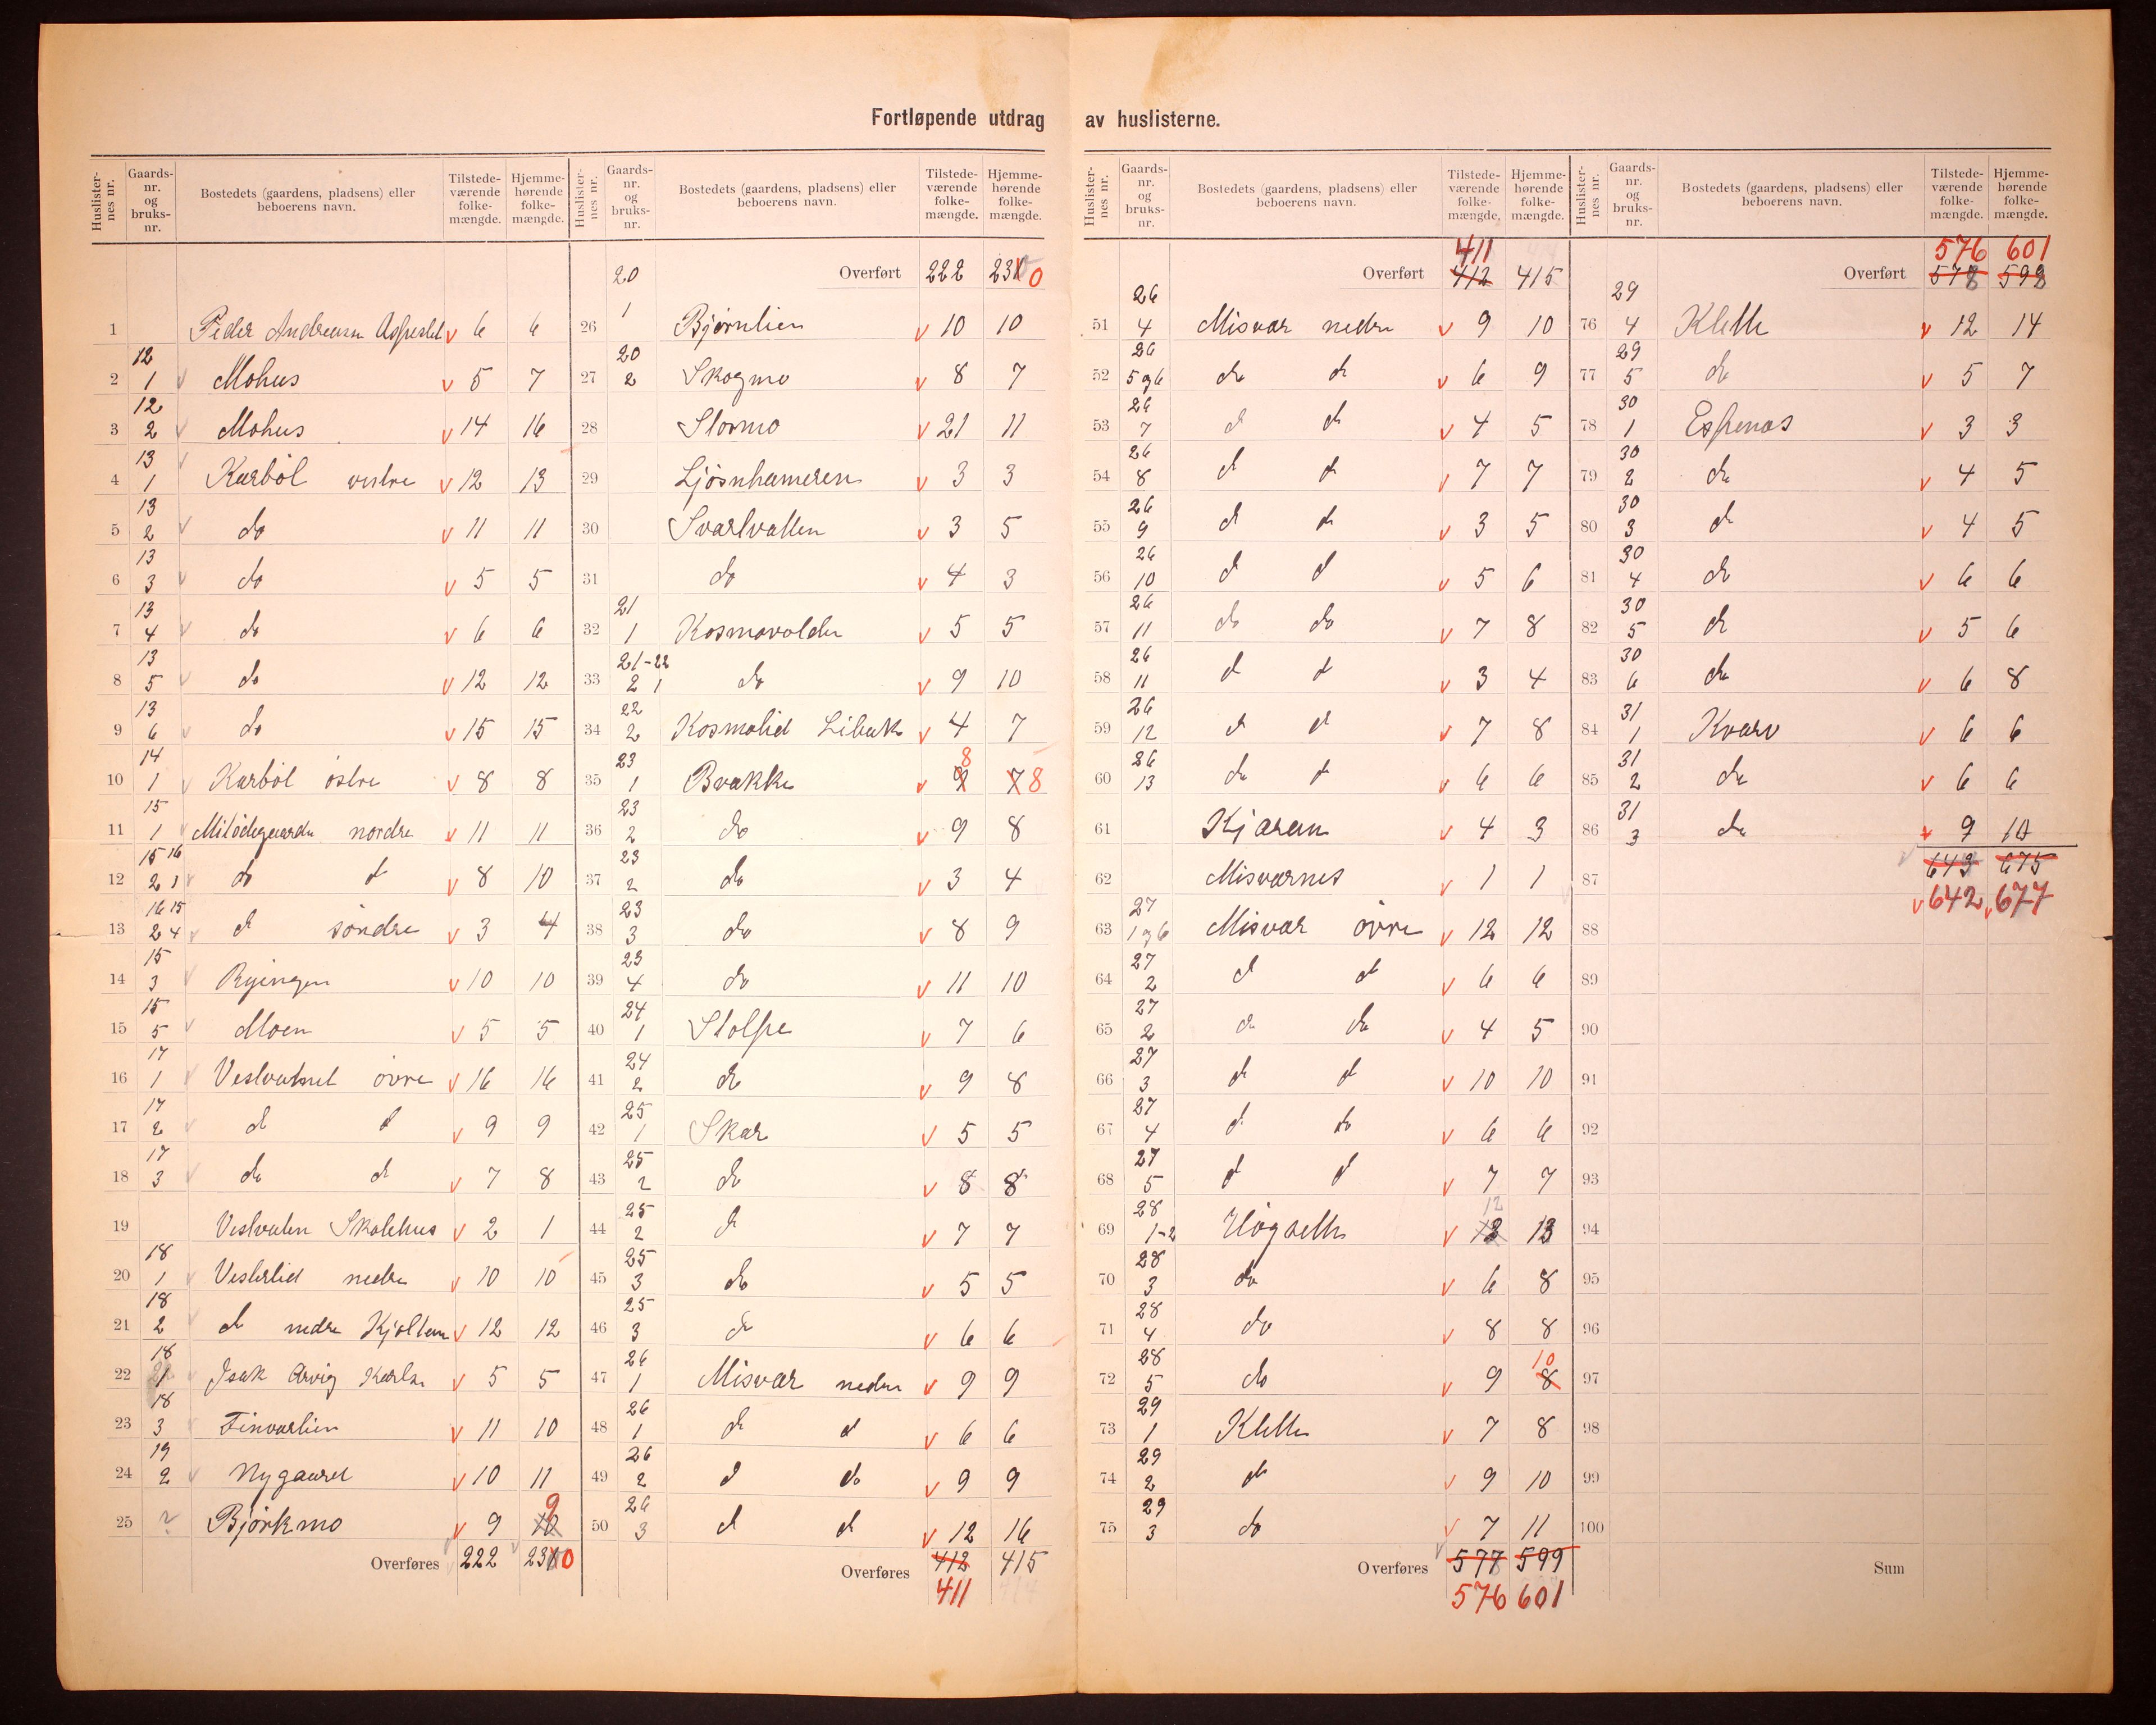 Fortløpende utdrag av huslisterne.
Huslister-nes nr. Gaards-nr. og bruks-nr. Bostedets (gaardens, pladsens) eller beboerens navn. Tilstede-værende folke-mængde. Hjemme-hørende folke-mængde.
1 Peder Andreasen v 6 6
2 12 1 Mohus v 5 7
3 12 2 Mohus v 14 16
4 13 1 Karbøl vestre v 12 13
5 13 2 do v 11 11
6 13 3 do v 5 5
7 13 4 do v 6 6
8 13 5 do v 12 12
9 13 6 do v 15 15
10 14 1 Karbøl østre v 8 8
11 15 1 Mitødegaarden nordre v 11 11
12 15 16 2 1 do d v 8 10
13 16 15 2 4 d søndre v 3 4
14 15 3 Ryingen v 10 10
15 15 5 Moen v 5 5
16 17 1 Vestvatnet øvre v 16 16
17 17 2 d d v 9 9
18 17 3 do d v 7 8
19 Vestvaten Skolehus v 2 1
20 18 1 Vesterlid nedre v 10 10
21 18 2 d nedre Kjeltem v 12 12
22 18 Isak Arvig Karlsen v 5 5
23 18 3 Finvarlien v 11 10
24 19 2 Nygaard v 10 11
25 Bjørkmo v 9 10 9
Overføres 222 230
Huslister-nes nr. Gaards-nr. og bruks-nr. Bostedets (gaardens, pladsens) eller beboerens navn. Tilstede-værende folke-mængde. Hjemme-hørende folke-mængde.
Overført 222 230
26 20 1 Bjørnlien v 10 10
27 20 2 Skogmo v 8 7
28 Stormo v 21 11
29 Ljøsnhameren v 3 3
30 Svartvatten v 3 5
31 do v 4 3
32 21 1 Kosmovolden v 5 5
33 21-22 2 1 do v 9 10
34 22 2 Kosmolid Libak v 4 7
35 23 1 Bvakke v 9 8 7 8
36 23 2 do v 9 8
37 23 2 do v 3 4
38 23 3 do v 8 9
39 23 4 do v 11 10
40 24 1 Stolpe v 7 6
41 24 2 do v 9 8
42 25 1 Skar v 5 5
43 25 2 do v 8 8
44 25 2 d v 7 7
45 25 3 do v 5 5
46 25 3 d v 6 6
47 26 1 Misvær nedre v 9 9
48 26 1 d d v 6 6
49 26 2 d do v 9 9
50 26 3 d d v 12 16
Overføres 412 415
411
Huslister-nes nr. Gaards-nr. og bruks-nr. Bostedets (gaardens, pladsens) eller beboerens navn. Tilstede-værende folke-mængde. Hjemme-hørende folke-mængde.
411
Overført 412 415
51 26 4 Misvær nedre v 9 10
52 26 5 og 6 do d v 6 9
53 26 7 d d v 4 5
54 26 8 d d v 7 7
55 26 9 d d v 3 5
56 26 10 d d v 5 6
57 26 11 do do v 7 8
58 26 11 d d v 3 4
59 26 12 d d v 7 8
60 26 13 do d v 6 6
61 Kjæran v 4 3
62 Misværnes v 1 1
63 27 1 og 6 Misvær øvre v 12 12
64 27 2 d d v 6 6
65 27 2 d do v 4 5
66 27 3 d d v 10 10
67 27 4 d do v 6 6
68 27 5 d d v 7 7
69 28 1-2 Høgseth v 13 12 13
70 28 3 do v 6 8
71 28 4 do v 8 8
72 28 5 do v 9 8 10
73 29 1 Klette v 7 8
74 29 2 do v 9 10
75 29 3 do v 7 11
Overføres 577 599
576 601
Huslister-nes nr. Gaards-nr. og bruks-nr. Bostedets (gaardens, pladsens) eller beboerens navn. Tilstede-værende folke-mængde. Hjemme-hørende folke-mængde.
576 601
Overført 578 599
76 29 4 Klette v 12 14
77 29 5 do v 5 7
78 30 1 Espenes v 3 3
79 30 2 do v 4 5
80 30 3 d v 4 5
81 30 4 do v 6 6
82 30 5 d v 5 6
83 30 6 do v 6 8
84 31 1 Kvarv v 6 6
85 31 2 do v 6 6
86 31 3 do v 9 10
87 643 675
v 642 v 677
88
89
90
91
92
93
94
95
96
97
98
99
100
Sum